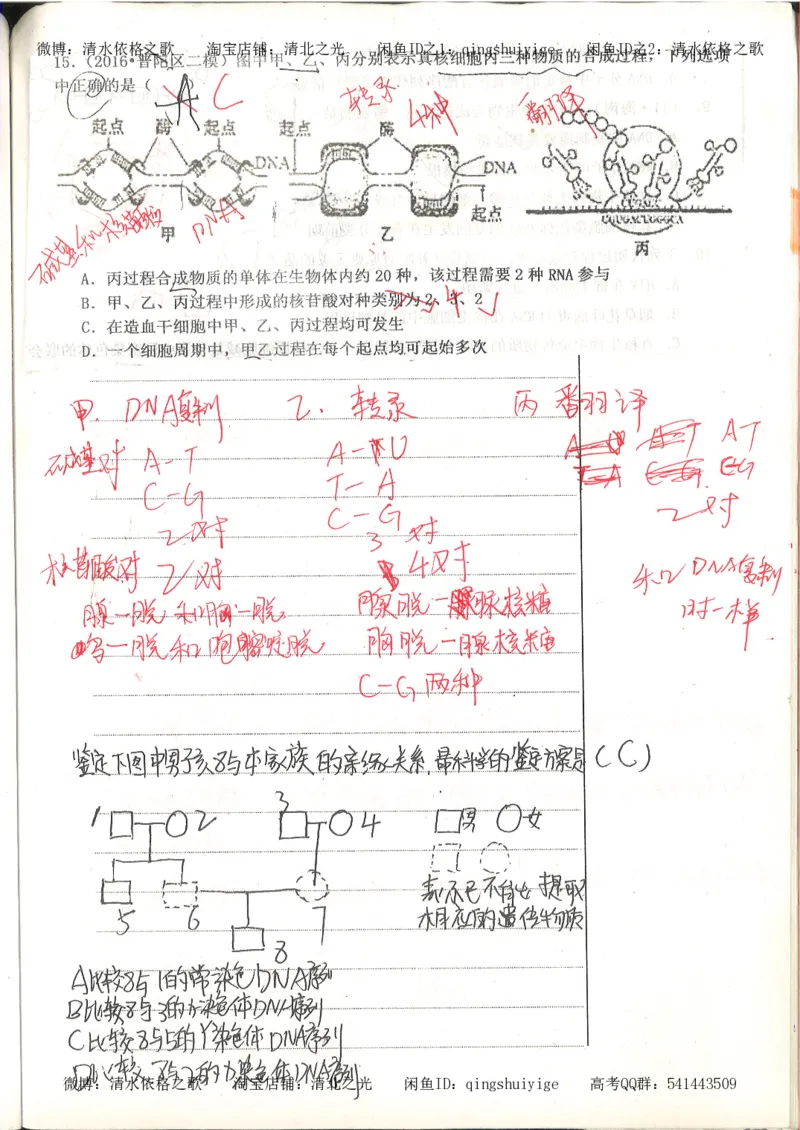 微博：清水依格之歌 淘宝店铺：清北之光 闲鱼ID之1：qingshuiyige 闲鱼ID之2：清水依格之歌
15．（2016·普陀区二模）图中甲、乙、丙分别表示真核细胞内三种物质的合成过程，下列选项
中正确的是（
A C
转录
4种
翻译
起点 酶 起点
起点 酶
DNA
DNA
起点
UUGACUGGGCA
甲
乙
丙
碱基和核苷酸
DNA
A．丙过程合成物质的单体在生物体内约 20 种，该过程需要 2 种 RNA 参与
B．甲、乙、丙过程中形成的核苷酸对种类别为 2、3、2
4
C．在造血干细胞中甲、乙、丙过程均可发生
D．一个细胞周期中，甲乙过程在每个起点均可起始多次
甲．DNA复制 乙．转录 丙 翻译
碱基对 A-T A-U AT
C-G T-A CG
C-G 2对
2对 3对
核苷酸对 2对 4对
和DNA复制
时一样
腺-脱 和胸-脱 腺脱-脲核糖
鸟-脱和胞嘧啶脱 胸脱-腺核糖
C-G两种
鉴定下图中男孩8与本家族的亲缘关系,最科学的鉴定方案是(C)
1 2 3 4 男 女
表示已不能提取
相应的遗传物质
5 6 7
8
A比较8与1的常染色DNA序列
B比较8与3的X染色体DNA序列
C比较8与5的Y染色体DNA序列
D比较8与2的X染色体DNA序列
微博：清水依格之歌 淘宝店铺：清北之光 闲鱼ID：qingshuiyige 高考QQ群：541443509